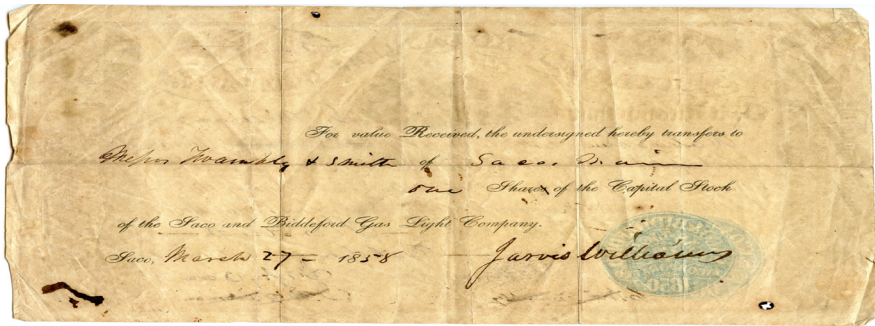 For value Received, the undersigned hereby transfers to
Messrs Twambly & Smith of Saco. Maine
one Shares of the Capital Stock
of the Saco and Biddeford Gas Light Company.
Saco, March 27 = 1858 Jarvis Williams